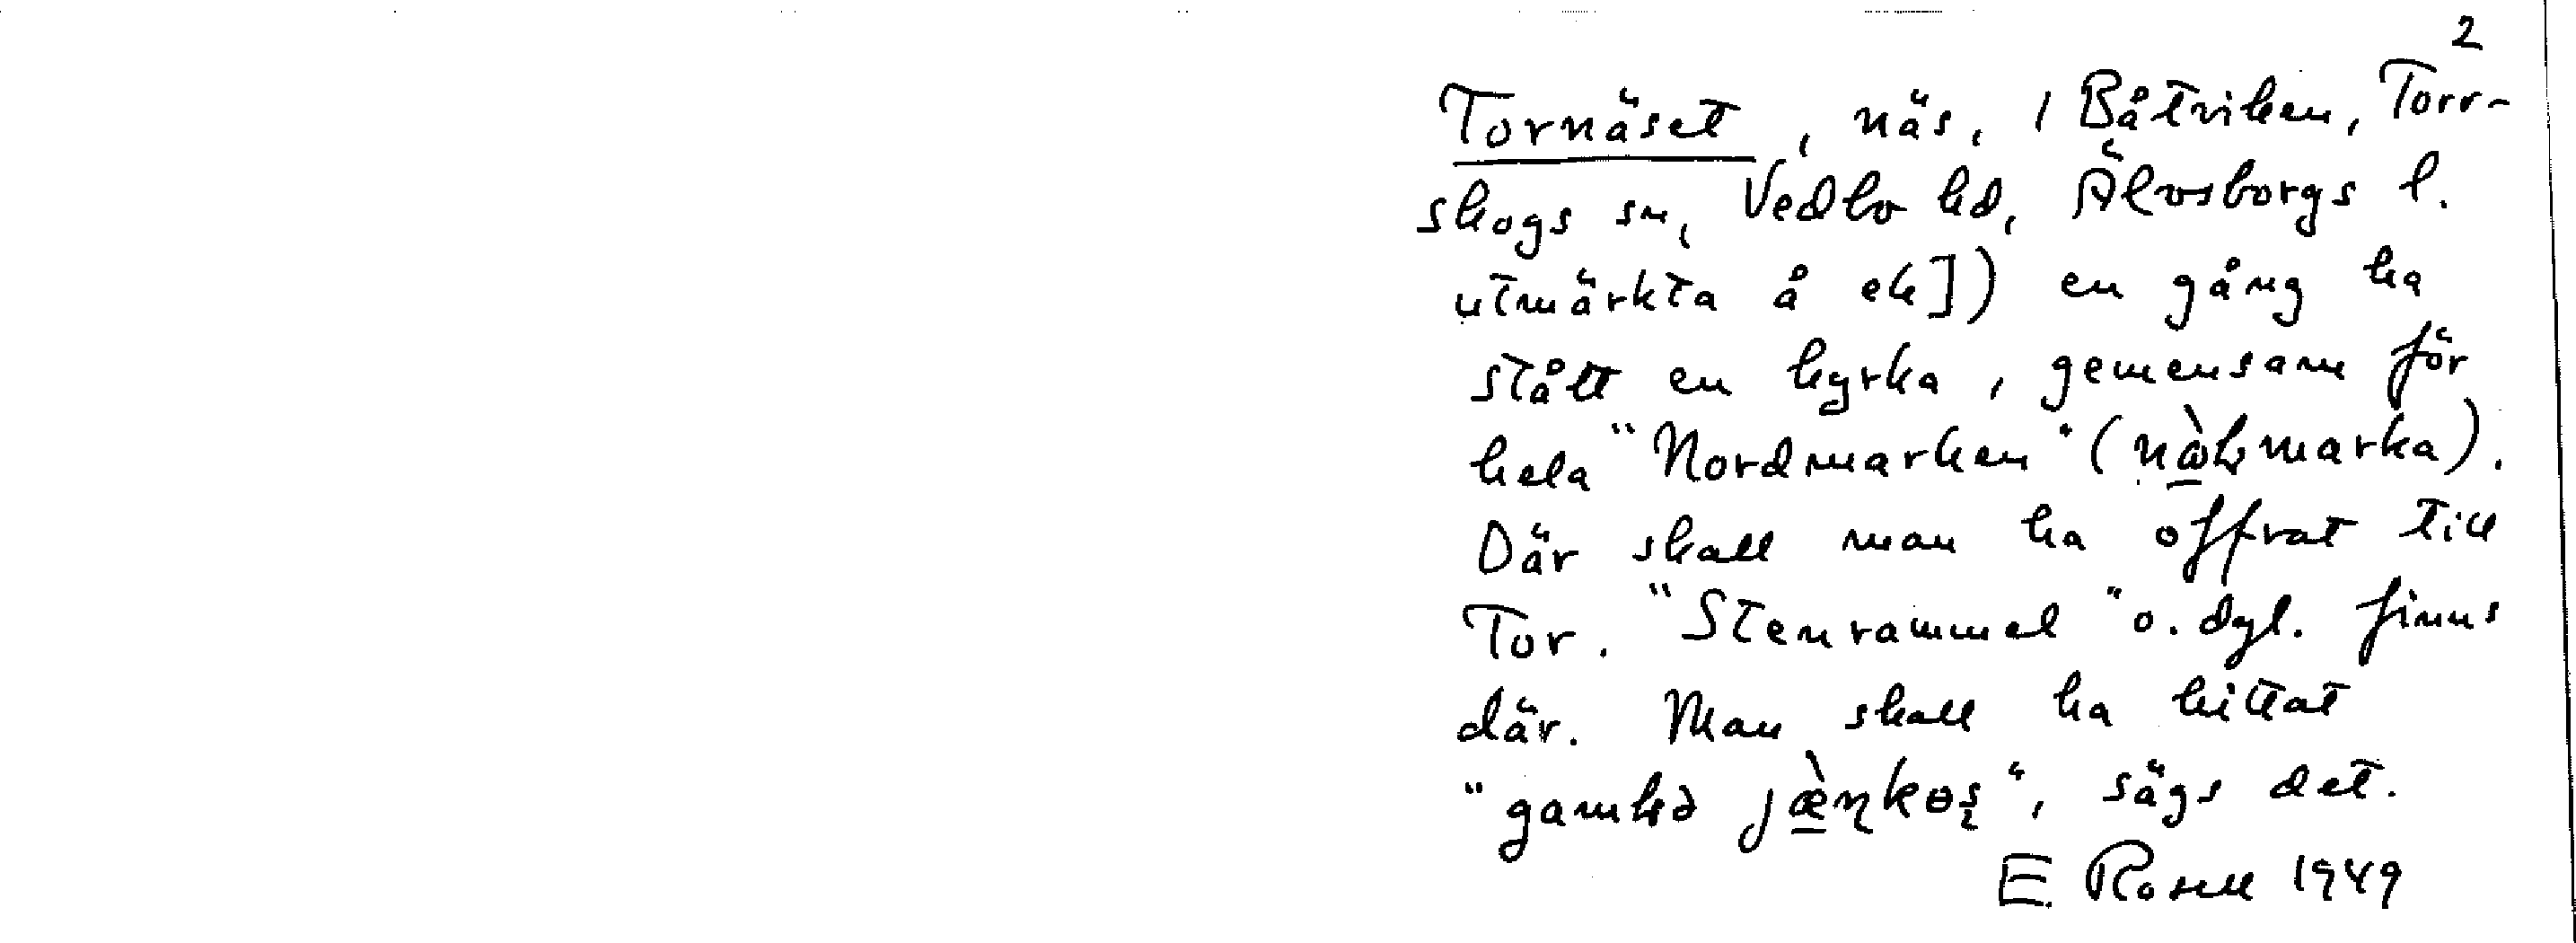 2
Tornäset, näs, i Båtviken, Torr-
skogs sn, Vedbo hd, Älvsborgs l.
utmärkta å ek]) en gång ha
stått en kyrka, gemensam för
hela "Nordmarken" (
Där skall man ha offrat till
Tor. "Stenrammel" o. dyl. finns
där. Man skall ha hittat
", sägs det.
E. Rosell 1949